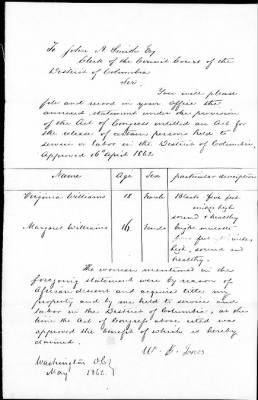 To John A Smith Esq
Clerk of the Circuit Court of the
District of Columbia
Sir.
You will please
file and record in your Office the
annexed statement under the provision
of the Act of Congress entitled an Act for
the release of certain persons held to
service or labor in the District of Columbia,
Approved 16th April 1862
Name Age Sex particular description
Virginia Williams 18 female Black five feet
inches high
sound & healthy
Margaret Williams 16 female bright mulatto
feet inches
high, sound and
healthy.
The women mentioned in the
foregoing statement were by reason of
African descent and acquired title my
property and by me held to service and
labor in the District of Columbia, at the
time the Act of Congress above cited was
approved the benefit of which is hereby
claimed.
Washington D.C.
May 1862.